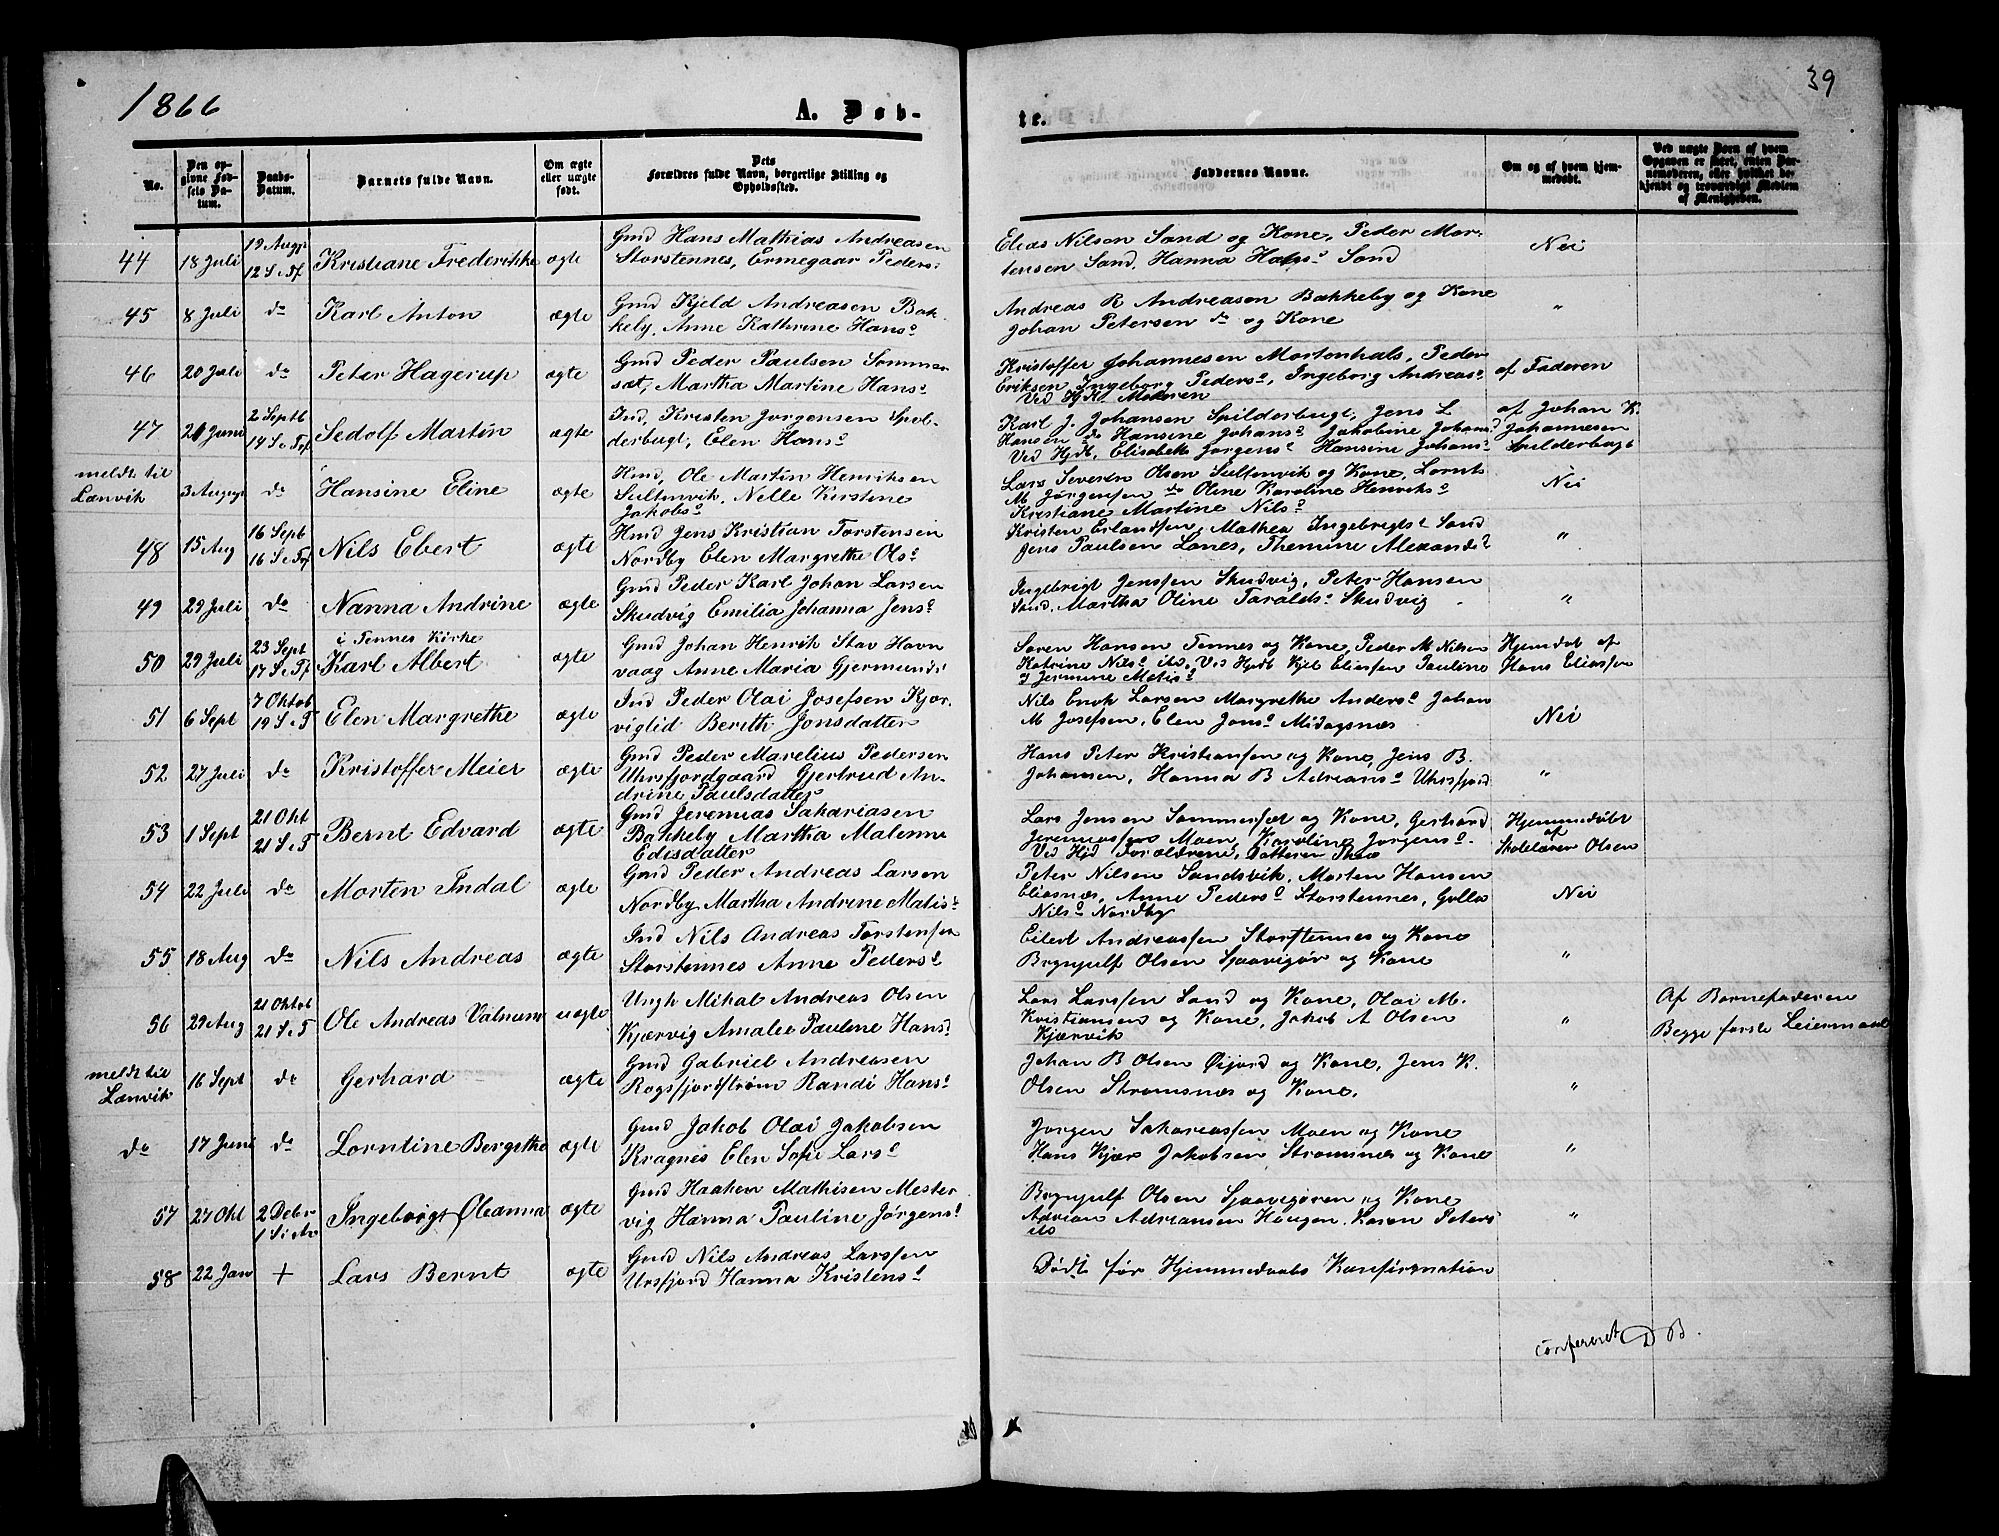 1866
A. Døb-
te.
39
No.
Den op-
givne Fød-
sels Da-
tum.
Daabs-
Datum.
Barnets fulde Navn.
Om ægte
eller uægte
født.
Dets
Forældres fulde Navn, borgerlige Stilling og
Opholdssted.
Faddernes Navne.
Om og af hvem hjem-
medøbt.
Ved uægte Børn af hvem
Opgaven er skeet, enten Bar-
nemoderen, eller hvilket be-
kjendt og troværdigt Medlem
af Menigheden.
44 18 Juli 19 Augu 12 S e Tf Kristiane Frederikke ægte
Gmd Hans Mathias Andreasen
Storstennes, Ermegaar Peders:
Elias Nilsen Sand og Kone, Peder Mor-
tensen Sand, Hanna Hans Sand
Nei
45 8 Juli do Karl Anton ægte
Gmd Kjeld Andreasen Bak-
keby, Anne Kathrine Hans
Andreas R Andreasen Bakkeby og Kone
Johan Petersen do og Kone
"
46 20 Juli do Peter Hagerup ægte
Gmd Peder Paulsen Sommer
sæt, Martha Martine Hans
Kristoffer Johannesen Mortenhals, Peder
Eriksen Ingeborg Peders, Ingeborg Andreas
Ved Hjd Moderen
af Faderen
47 21 Juni 2 Septb 14 S e Tf Sedolf Martin ægte
Ind, Kristen Jørgensen Spil-
derbugt, Elen Hans
Karl J. Johansen Spilderbugt, Jens L
Hansen do Hansine Johans Jakobine Johans
Ved Hjdb, Elisabeth Jørgens Hansine Johans
af Johan K.
Johannesen
Spilderbugt
meldt til
Lænvik 3 Augu do Hansine Eline ægte
Hmd, Ole Martin Henriksen
Sultenvik, Nelle Kirstine
Jakobs
Lars Severin Olsen Sultenvik og Kone, Lornts
M Jørgensen do Oline Karoline Henriks
Kristiane Martine Nils
Nei
48 15 Aug 16 Sept 16 S e Tf Nils Ebert ægte
Hmd Jens Kristian Torstensen
Nordby Elen Margrethe Ols
Kristen Erlandsen, Mathea Ingebrigts Sand
Jens Paulsen Lanes, Themine Alexands
"
49 29 Juli do Nanna Andrine ægte
Gmd Peder Karl Johan Larsen
Skudvig Emilia Johanna Jens
Ingebrigt Jenssen Skudvig, Peter Hansen
Sand, Martha Oline Taralds Skudvig
"
i Tennes Kirke
50 29 Juli 23 Sept 17 S e Tf Karl Albert ægte
Gmd Johan Henrik Stav Havn
vaag Anne Maria Gjermunds
Søren Hansen Tennes og Kone, Peder M Nilsen
Katrine Nils its, Ved Hjdb Kjel Eliassen Pauline
J Jermine Matis
Hjemdøt af
Hans Eliassen
51 6 Sept 7 Oktob 19 S e T Elen Margrethe ægte
Ind Peder Olai Josefsen Kjær-
viglid Berith Jonsdatter
Nils Enok Larsen Margrethe Anders Johan
M Josefsen, Elen Jons Midagsnæs
Nei
52 27 Juli do Kristoffer Meier ægte
Gmd Peder Marelius Pedersen
Uhrsfjordgaard Gjertrud An-
drine Paulsdatter
Hans Peter Kristiansen og Kone, Jens B.
Johansen, Hanna B Adrians Uhrsfjord
"
53 1 Sept 21 Okt 21 S e T Bernt Edvard ægte
Gmd Jeremias Sakariasen
Bakkeby Martha Malenne
Edisdatter
Lars Jensen Sommerset og Kone, Gerhard
Jeremiassen Moen, Karoline Jørgens.
Ved Hjd Forældrene, Datteren Thea
Hjemmedøbt
af
Skolelærer Olsen
54 22 Juli do Morten Indal ægte
Gmd Peder Andreas Larsen
Nordby Martha Andrine Matis
Peter Nilsen Sandsvik, Morten Hansen
Eliasnæs, Anne Peders Storstennes, Golla
Nils Nordby
Nei
55 18 Aug do Nils Andreas ægte
Ind Nils Andreas Torstensen
Storstennes Anne Peders
Eilert Andreassen Storstennes og Kone
Brynjulf Olsen Sjaavigør og Kone
"
56 29 Aug 21 Oktob 21 S e T Ole Andreas Valnum uægte
Ungk Mikal Andreas Olsen
Kjærvig Amalie Pauline Hans
Lars Larssen Sand og Kone, Olai M.
Kristiansen og Kone, Jakob A Olsen
Kjærvik
"
Af Barnefaderen
Begge første Leiermaal
meldt til
Lænvik 16 Sept do Gerhard ægte
Gmd Gabriel Andreasen
Rogsfjordstrøm Randi Hans
Johan B Olsen Øijord og Kone, Jens K.
Olsen Strømsnæs og Kone.
"
do 17 Juni do Lorntine Bergithe ægte
Gmd Jakob Olai Jakobsen
Kragnes Elen Sofie Lars
Jørgen Sakariassen Moen og Kone
Hans Kjær Jakobsen Strømsnes og Kone
"
57 27 Okt 2 Debr 1 S i Av Ingeborg Oleanna ægte
Gmd Haaken Mathisen Mester
vig Hanna Pauline Jørgens
Brynjulf Olsen Sjaavigøren og Kone
Adrian Adriansen Haugen, Karen Peters
its
"
58 22 Jan + Lars Bernt ægte
Gmd Nils Andreas Larssen
Ursfjord Hanna Kristens
Dødt før Hjemmedaabs Konfirmation
confereret D B.